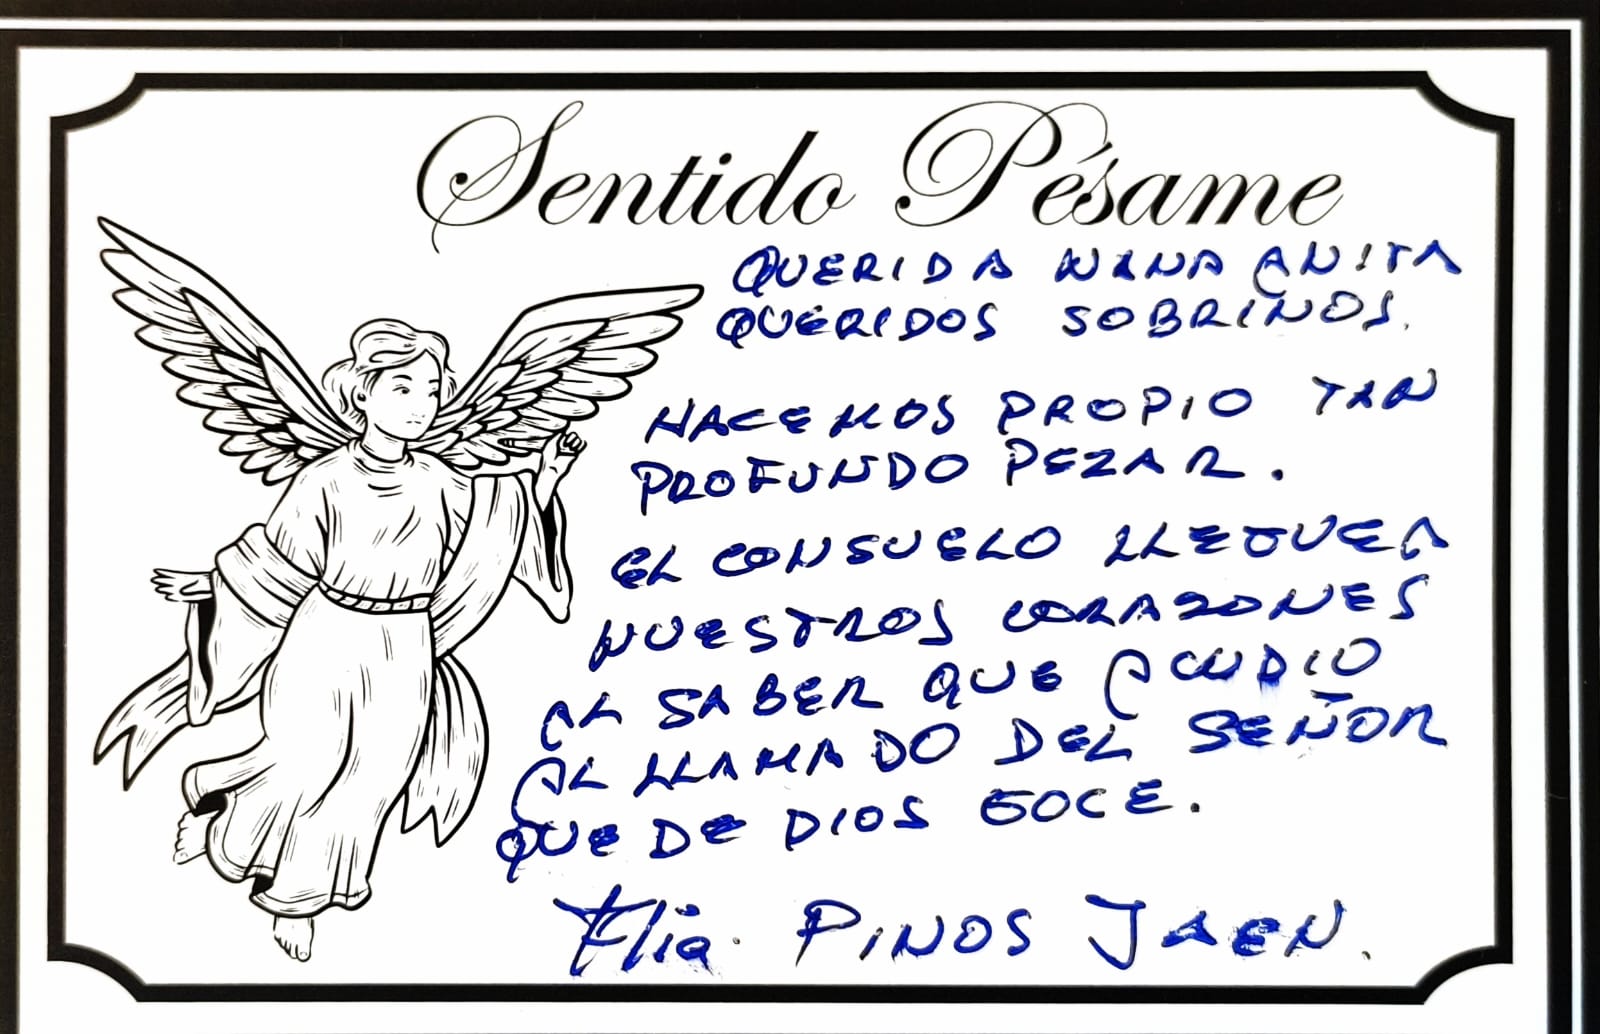 Sentido Pésame
QUERIDA NANA ANITA
QUERIDOS SOBRINOS.
HACEMOS PROPIO TAN
PROFUNDO PEZAR.
EL CONSUELO LLEGUE A
NUESTROS CORAZONES
AL SABER QUE ACUDIO
AL LLAMADO DEL SEÑOR
QUE DE DIOS GOCE.
Flia. PINOS JAEN.